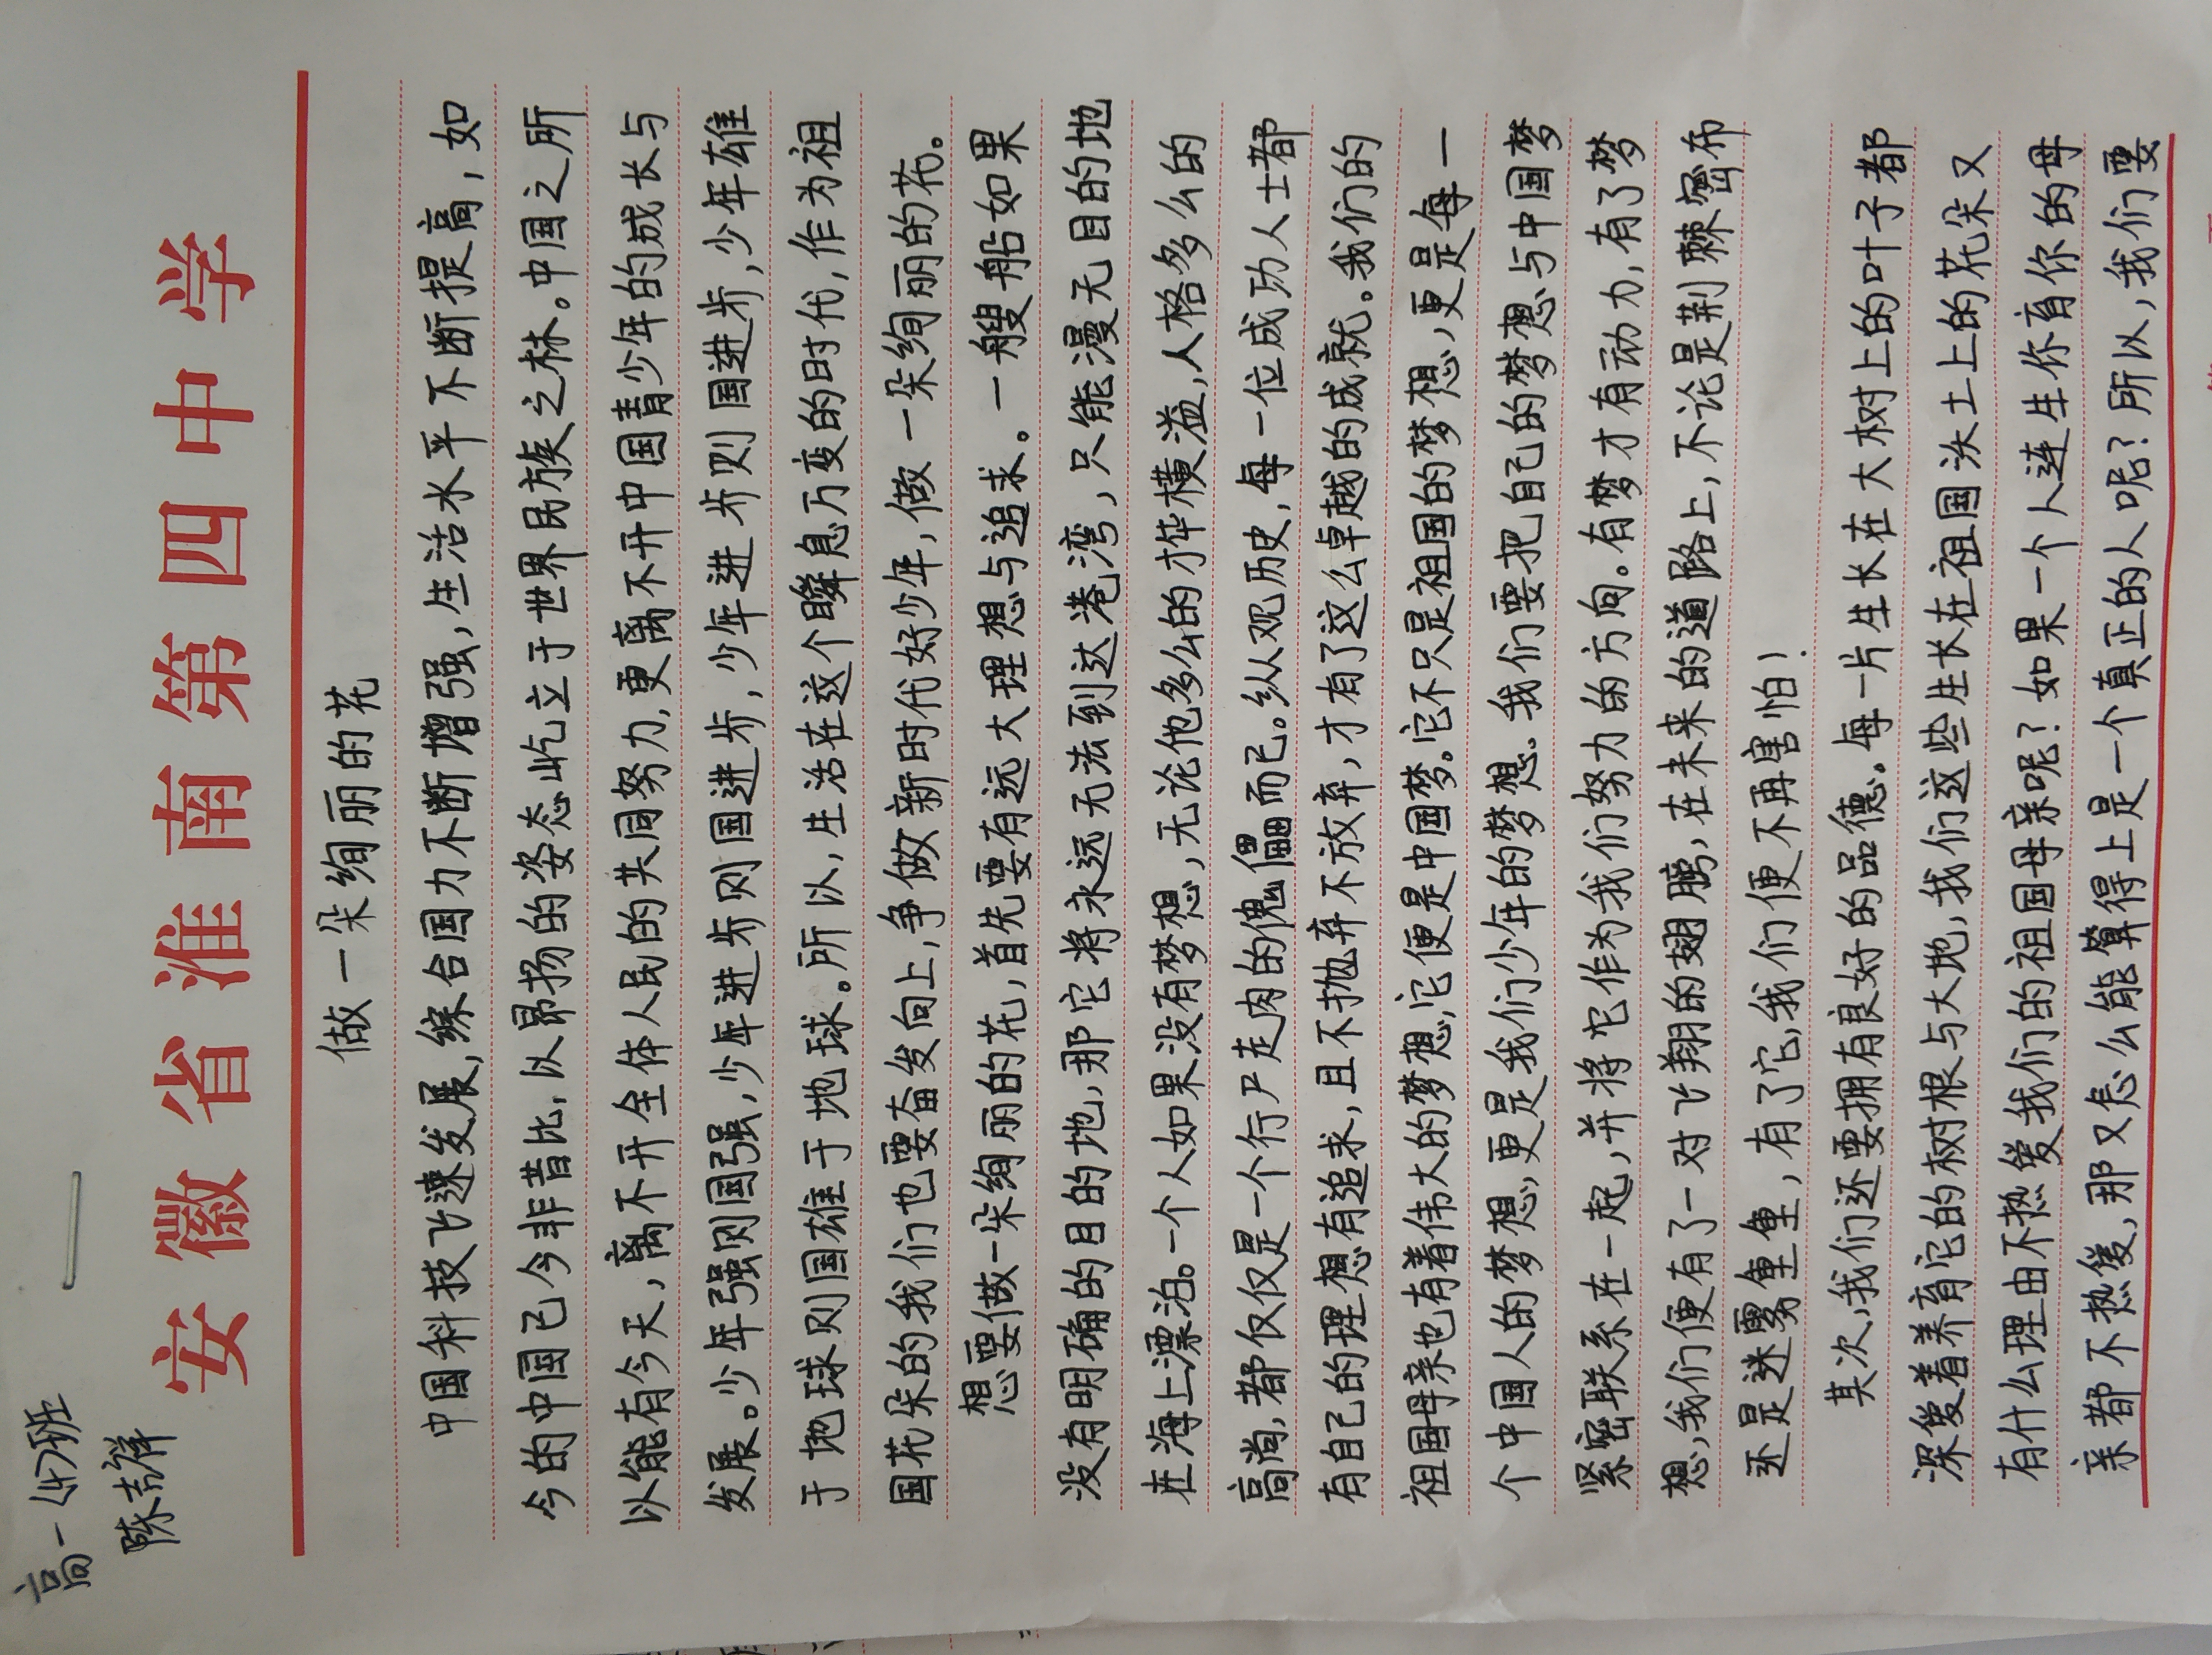 高一(47)班
陈吉祥
安徽省淮南第四中学
做一朵绚丽的花
中国科技飞速发展,综合国力不断增强,生活水平不断提高,如
今的中国已今非昔比,以昂扬的姿态屹立于世界民族之林。中国之所
以能有今天,离不开全体人民的共同努力,更离不开中国青少年的成长与
发展。少年强则国强,少年进步则国进步,少年进步则国进步,少年雄
于地球则国雄于地球。所以,生活在这个瞬息万变的时代,作为祖
国花朵的我们也要奋发向上,争做新时代好少年,做一朵绚丽的花。
想要做一朵绚丽的花,首先要有远大理想与追求。一艘船如果
没有明确的目的地,那它将永远无法到达港湾,只能漫无目的地
在海上漂泊。一个人如果没有梦想,无论他多么的才华横溢,人格多么的
高尚,都仅仅是一个行尸走肉的傀儡而已。纵观历史,每一位成功人士都
有自己的理想有追求,且不抛弃不放弃,才有了这么卓越的成就。我们的
祖国母亲也有着伟大的梦想,它便是中国梦。它不只是祖国的梦想,更是每一
个中国人的梦想,更是我们少年的梦想。我们要把自己的梦想与中国梦
紧密联系在一起,并将它作为我们努力的方向。有梦才有动力,有了梦
想,我们便有了一对飞翔的翅膀,在未来的道路上,不论是荆棘密布
还是迷雾重重,有了它,我们便不再害怕!
其次,我们还要拥有良好的品德。每一片生长在大树上的叶子都
深爱着养育它的树根与大地,我们这些生长在祖国沃土上的花朵又
有什么理由不热爱我们的祖国母亲呢?如果一个人连生你育你的母
亲都不热爱,那又怎么能算得上是一个真正的人呢?所以,我们要